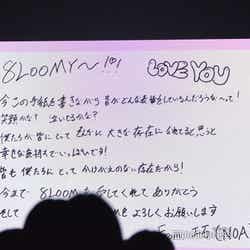 8LOOMY〜!!!
LOVE YOU
今この手紙を書きながら 皆がどんな表情をしているんだろうな〜って!
笑顔かな? 泣いてるかな?
僕たちが皆にとって
大きな存在に
思うと
幸せな気持ちでいっぱいです!
皆も僕たちにとって かけがえのない存在だから!
今まで 8LOOMを愛してくれて ありがとう
そして
よろしくお願いします
(NOA